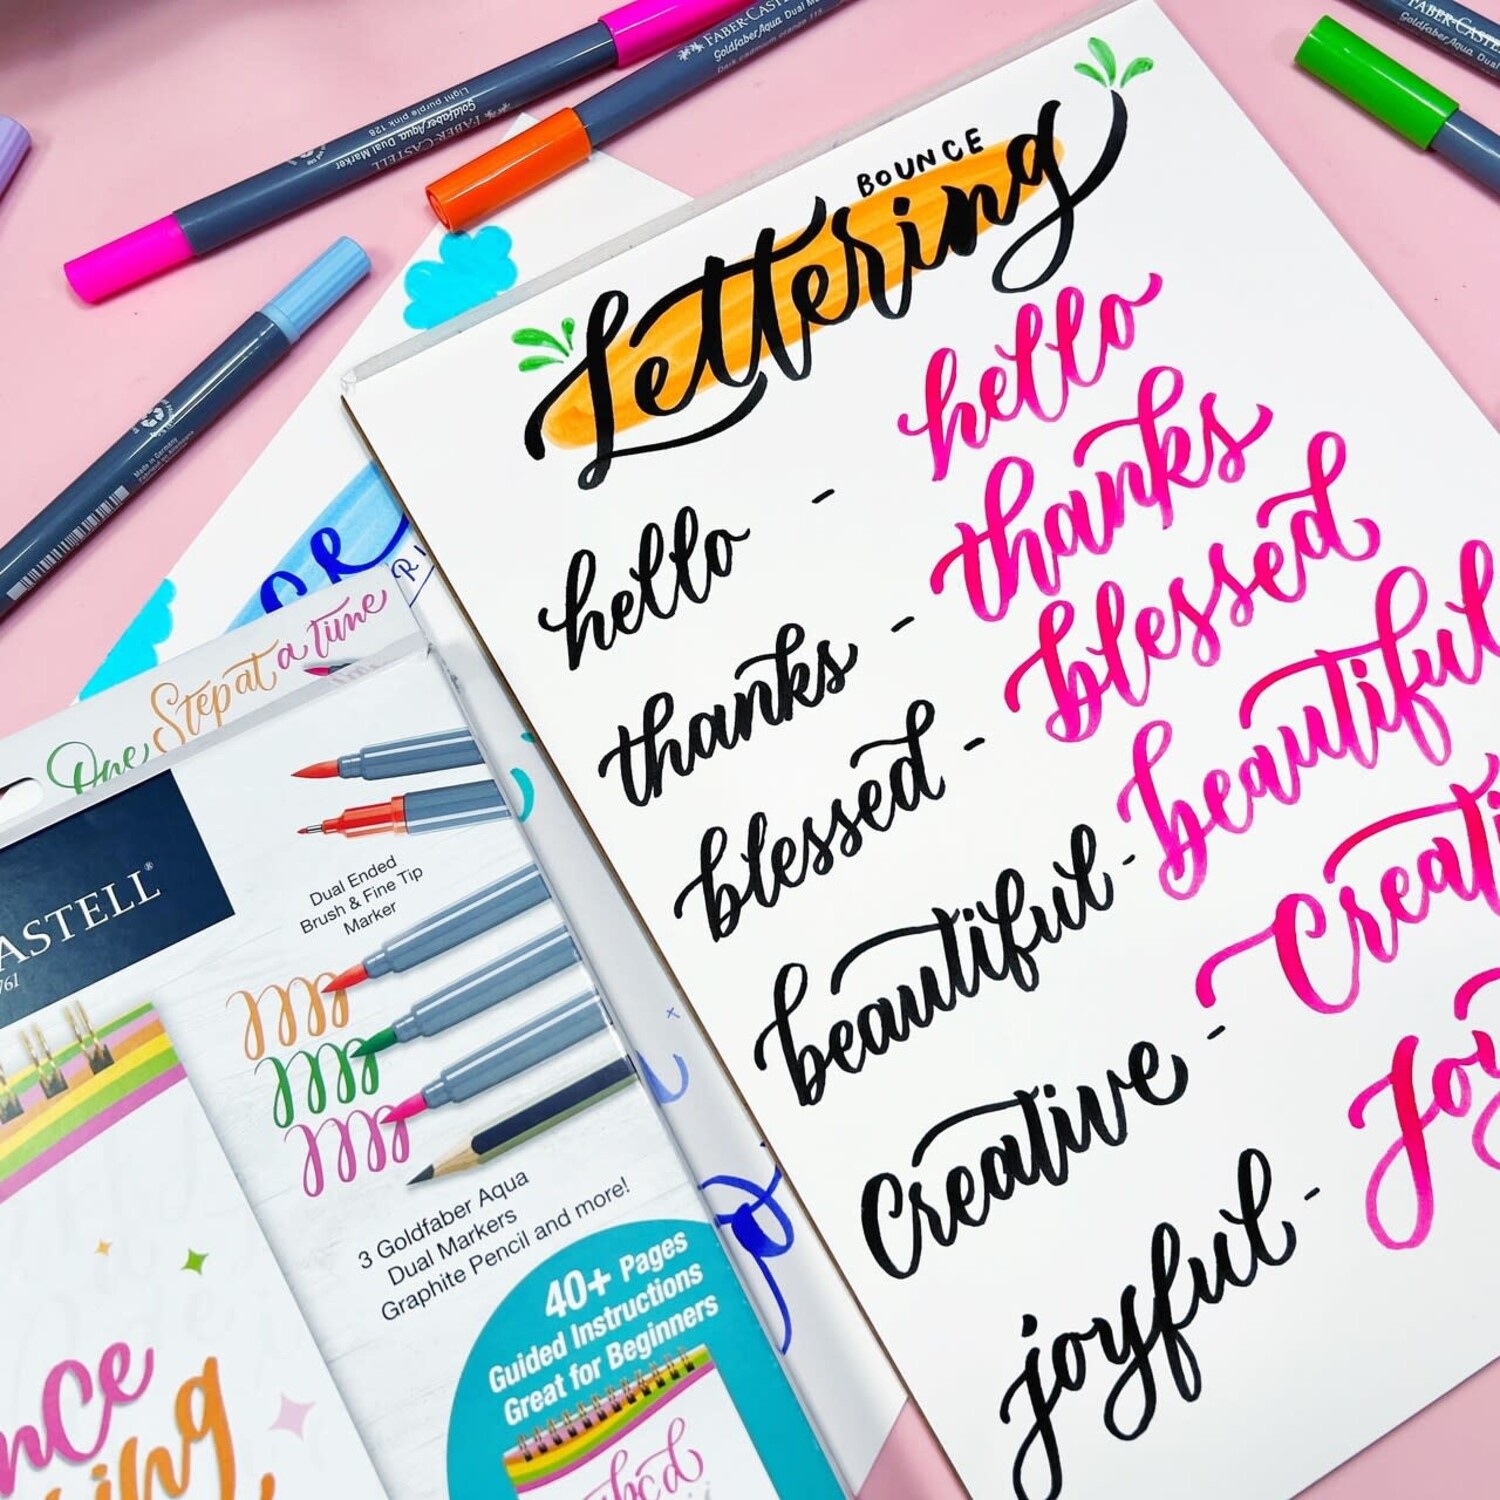 FABER-CASTELL
Goldfaber Aqua Dual Marker
Light purple pink 128
FABER-CASTELL
Goldfaber Aqua Dual
Dark cadmium orange 115
FABER-CASTELL
Goldfaber Aqua Dual
Made in Germany
BOUNCE
Lettering
hello - hello
thanks - thanks
blessed - blessed
beautiful - beautiful
Creative - Creati
joyful - Joy
One Step at a time
ASTELL®
761
Dual Ended
Brush & Fine Tip
Marker
3 Goldfaber Aqua
Dual Markers
Graphite Pencil and more!
40+ Pages
Guided Instructions
Great for Beginners
abcd
nce
ing